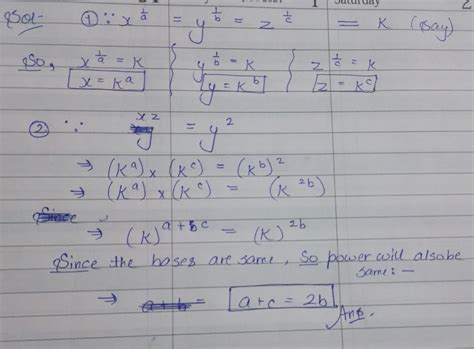 Saturday 2
Sol- ① ∵ x^(1/a) = y^(1/b) = z^(1/c) = K (Say)
So, x^(1/a) = K { y^(1/b) = K { z^(1/c) = K
x = K^a { y = K^b { z = K^c
② ∵ xz = y^2
⇒ (K^a) × (K^c) = (K^b)^2
⇒ (K^a) × (K^c) = (K^2b)
Since
⇒ (K)^(a+c) = (K)^2b
Since the bases are same, So power will also be
same:—
⇒ a+b = a+c = 2b
Ans.